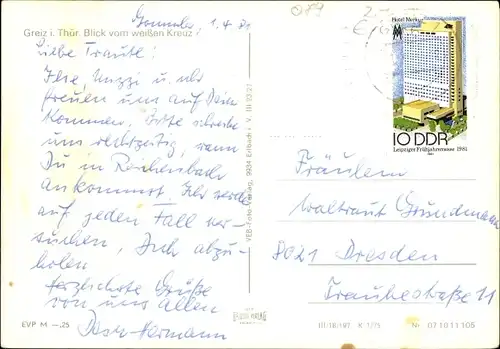 1.4.81
Greiz i. Thür. Blick vom weißen Kreuz
Liebe Traute!
Ilse, Muzzi u. ich
freuen uns auf Dein
Kommen. Bitte schreibe
uns rechtzeitig, wann
Du in Reichenbach
ankommst. Ich werde
auf jeden Fall ver-
suchen, Dich abzu-
holen
Herzlichste Grüße
von uns allen
Dein Hermann
EVP M —,25
VEB-Foto-Verlag, 9934 Erlbach i. V.
Hotel Merkur
10 DDR
Leipziger Frühjahrsmesse 1981
Fräulein
Waltraut Grundmann
8021 Dresden
Traubestraße 11
III/18/197 K 1/75 Nr. 07 10 11 105